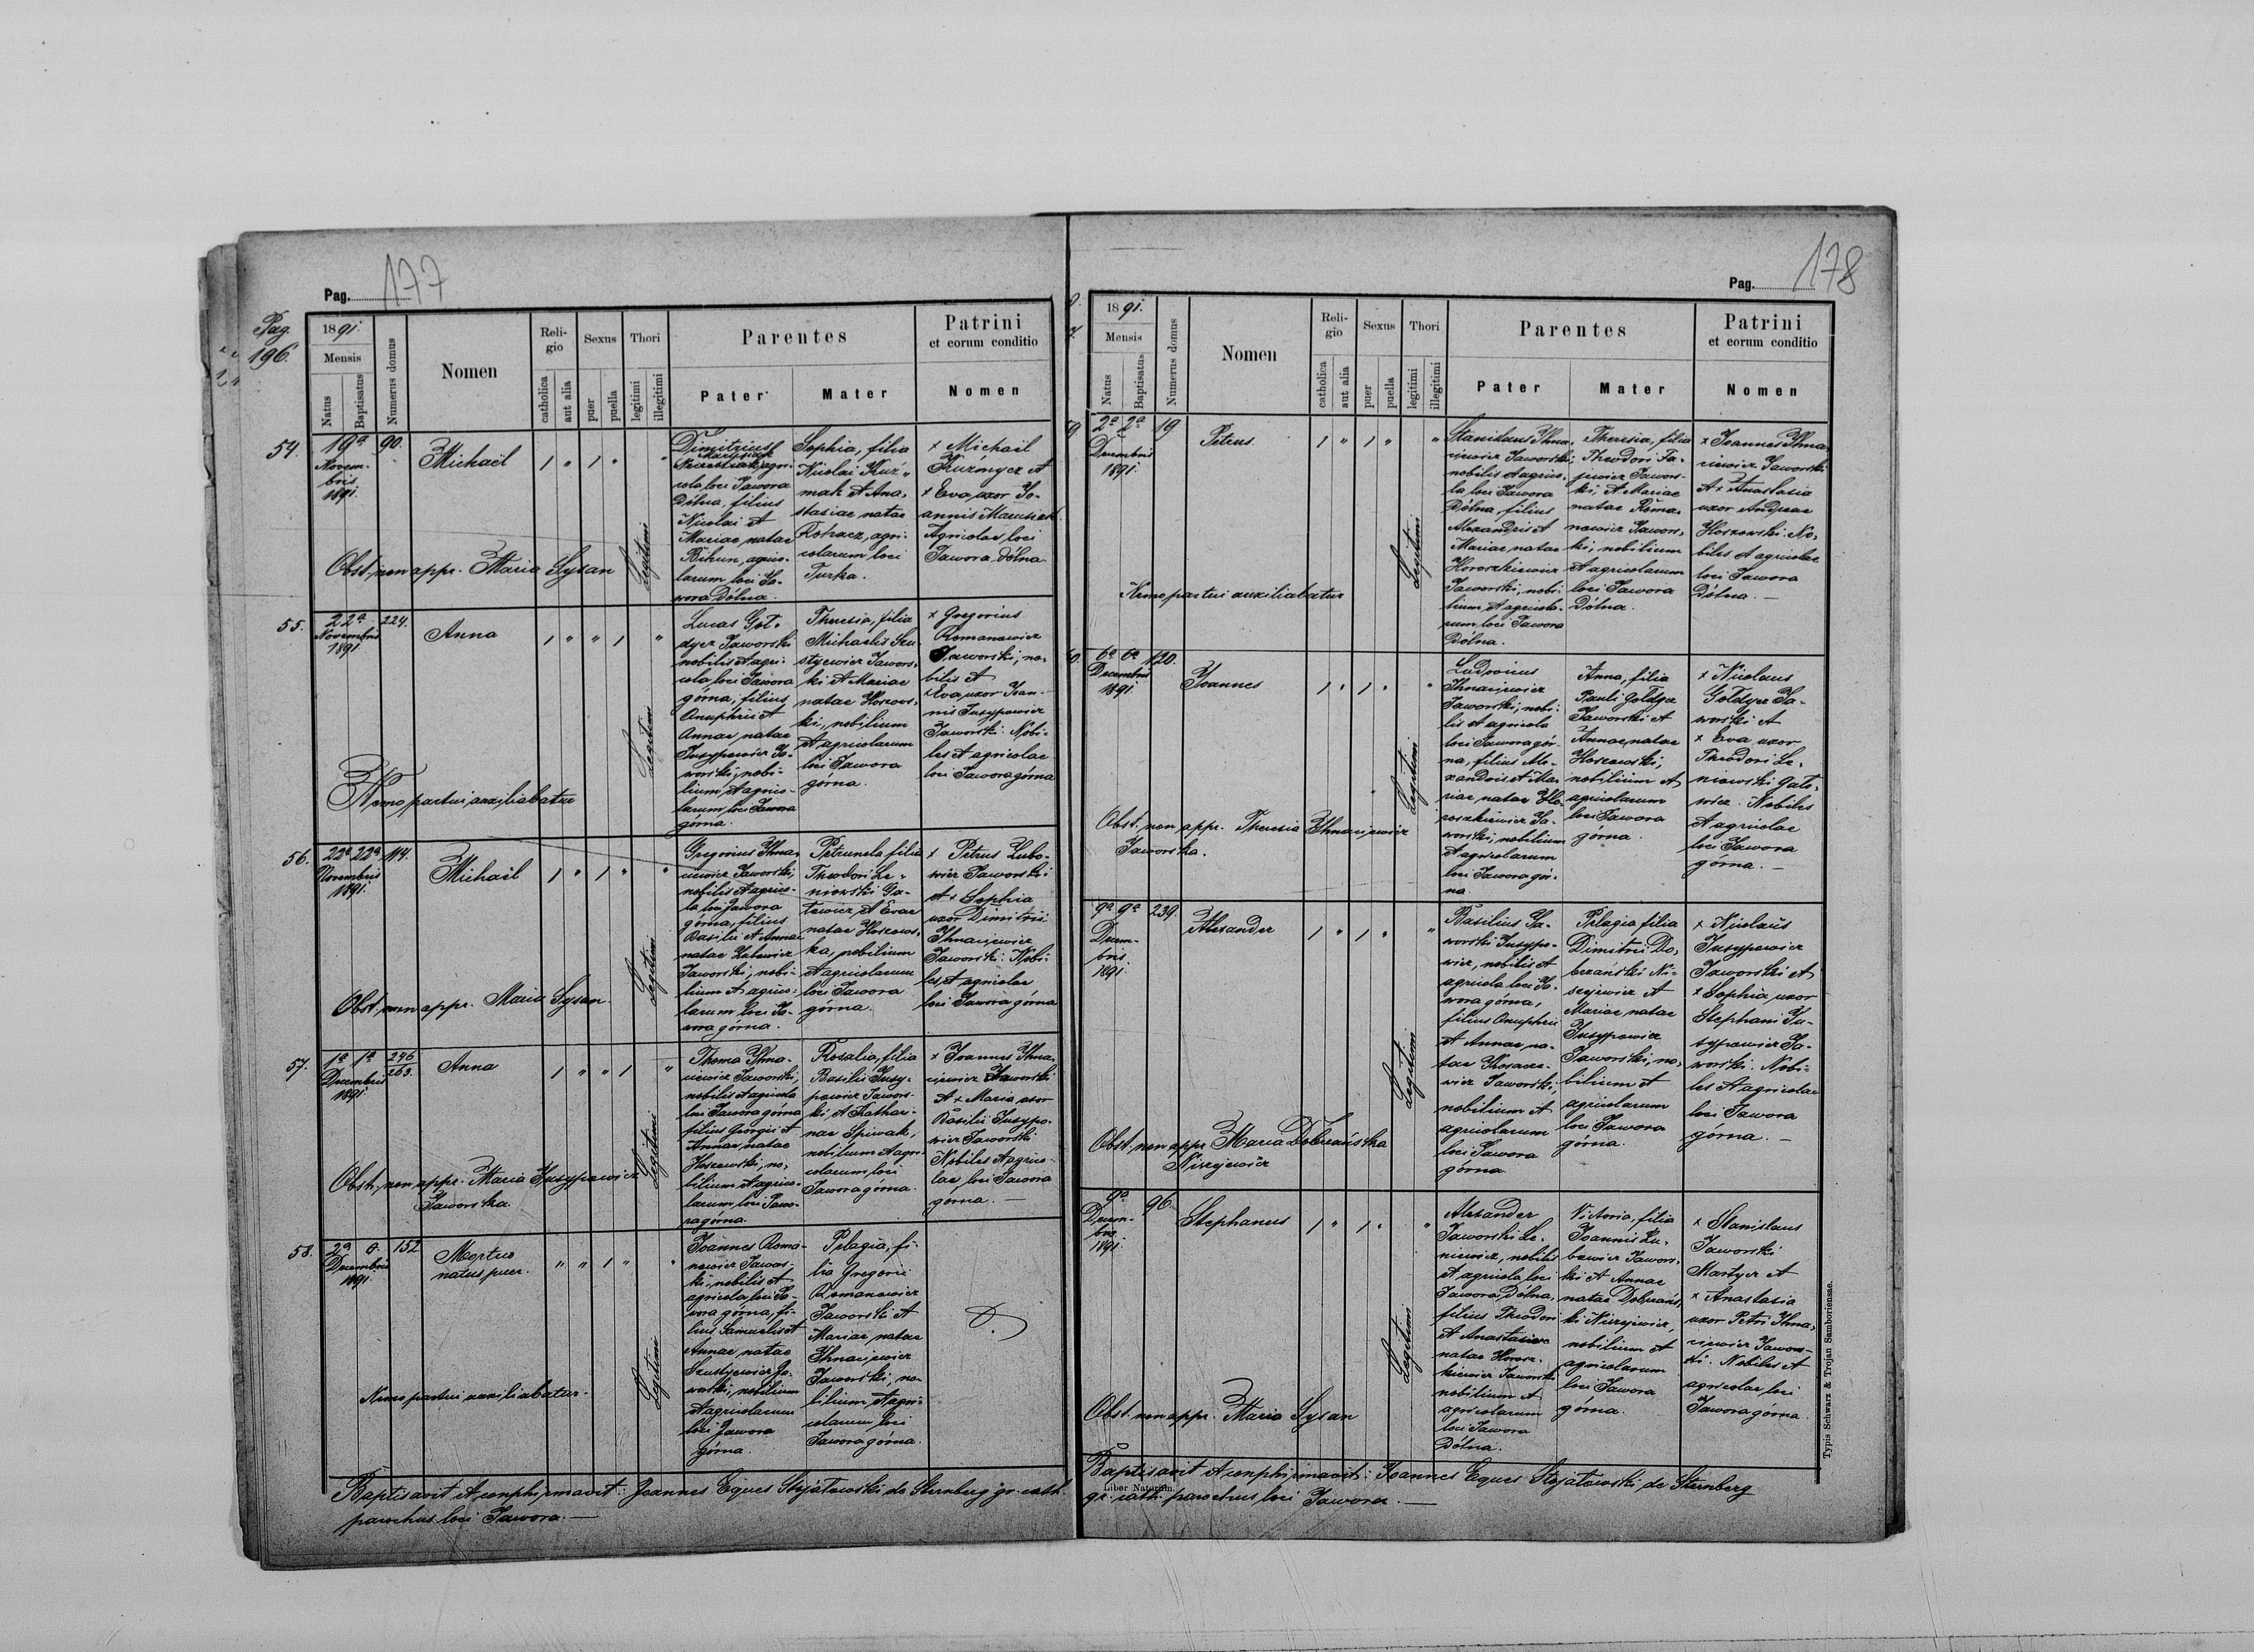 Pag. 177
Pag.
196.
1891.
Mensis
Natus
Baptisatus
Numerus domus
Nomen
Religio
catholica
aut alia
Sexus
puer
puella
Thori
legitimi
illegitimi
Parentes
Pater
Mater
Patrini
et eorum conditio
Nomen
54.
19a
Novem-
bris
1891.
90.
Michaël
1 " 1 " "
Legitimi
Dimitrius
agri-
cola loci Jawora
Dólna, filius
Nicolai et
Mariae natae
Bihun, agrico-
larum loci Ja-
wora Dólna.
Sophia, filia
Nicolai Kuź-
mak et Ana-
stasiae natae
agri-
colarum loci
Turka.
+ Michaël
Kuzmycz et
+ Eva uxor Jo-
annis Marusiak.
Agricolae loci
Jawora dólna
Obst. non appr. Maria Sysan
55.
22a
Novembris
1891.
224.
Anna
1 " " 1 "
Legitimi
Lucas Goł-
dycz Jaworski
nobilis et agri-
cola loci Jawora
górna, filius
Onuphrii et
Annae natae
Jusypowicz Ja-
worski, nobi-
lium et agrico-
larum loci Jawora
górna.
Theresia, filia
Michaelis Szu-
styewicz Jawors-
ki et Mariae
natae Hoszows-
ki, nobilium
et agricolarum
loci Jawora
górna.
+ Gregorius
Romanowicz
Jaworski, no-
bilis et
+ Eva uxor Joan-
nis Jusypowicz
Jaworski. Nobi-
les et agricolae
loci Jawora górna
Nemo partui auxiliabatur
56.
22a 22a
Novembris
1891.
114.
Michaël
1 " 1 " "
Legitimi
Gregorius Ihna-
ciewicz Jaworski,
nobilis et agrico-
la loci Jawora
górna, filius
Basilii et Annae
natae Lubowicz
Jaworski, nobi-
lium et agrico-
larum loci Ja-
wora górna.
Petrunela filia
Theodori Le-
niowski Ga-
towicz, et Evae
natae Hoszows-
ka, nobilium
et agricolarum
loci Jawora
górna.
+ Petrus Lubo-
wicz Jaworski
et + Sophia
uxor Dimitrii
Ihnaciewicz
Jaworski. Nobi-
les et agricolae
loci Jawora górna
Obst. non appr. Maria Sysan.
57.
1a 1a
Decembris
1891.
246
263.
Anna
1 " " 1 "
Legitimi
Thoma Ihna-
ciewicz Jaworski,
nobilis et agricola
loci Jawora górna
filius Georgii et
Annae natae
Hoszowski, no-
bilium et agrico-
larum loci Jawo-
ra górna.
Rosalia, filia
Basilii Jusy-
powicz Jawors-
ki et Kathari-
nae Spiwak,
nobilium et agri-
colarum loci
Jawora górna.
+ Joannes Ihna-
ciewicz Jaworski
et + Maria uxor
Basilii Jusypo-
wicz Jaworski.
Nobiles et agrico-
lae loci Jawora
górna. —
Obst. non appr. Maria Jusypowicz
Jaworska.
58.
2a 0.
Decembris
1891.
152
Mortuo
natus puer.
" " 1 " "
Legitimi
Joannes Roma-
nowicz Jawors-
ki, nobilis et
agricola loci Ja-
wora górna, fi-
lius Samuelis et
Annae natae
Szustyewicz Ja-
worski, nobilium
et agricolarum
loci Jawora
górna.
Pelagia, fi-
lia Gregorii
Romanowicz
Jaworski et
Mariae natae
Ihnaciewicz
Jaworski, no-
bilium et agri-
colarum loci
Jawora górna.
Nemo partui auxiliabatur.
Baptisavit et conphirmavit: Joannes Eques Stojałowski de Sternberg gr. cath.
parochus loci Jawora. —
Pag. 178
1891.
Mensis
Natus
Baptisatus
Numerus domus
Nomen
Religio
catholica
aut alia
Sexus
puer
puella
Thori
legitimi
illegitimi
Parentes
Pater
Mater
Patrini
et eorum conditio
Nomen
2a 2a
Decembris
1891.
19
Petrus
1 " 1 " "
Legitimi
Stanislaus Ihna-
ciewicz Jaworski,
nobilis et agrico-
la loci Jawora
Dólna, filius
Alexandri et
Mariae natae
Horoszkiewicz
Jaworski, nobi-
lium et agricola-
rum loci Jawora
Dólna.
Theresia, filia
Theodori Fa-
jewicz Jawors-
ki, et Mariae
natae Roma-
nowicz Jawors-
ki, nobilium
et agricolarum
loci Jawora
Dólna.
+ Joannes Ihna-
ciewicz Jaworski
et + Anastasia
uxor Andreae
Hoszowski. No-
biles et agricolae
loci Jawora
Dólna. —
Nemo partui auxiliabatur
6a 6a
Decembris
1891.
120.
Joannes
1 " 1 " "
Legitimi
Ludovicus
Ihnaciewicz
Jaworski, nobi-
lis et agricola
loci Jawora gór-
na, filius Ale-
xandris et Ma-
riae natae Ho-
roszkiewicz Ja-
worski, nobilium
et agricolarum
loci Jawora gór-
na
Anna, filia
Pauli Gołdycz
Jaworski et
Annae, natae
Hoszowski,
nobilium et
agricolarum
loci Jawora
górna.
+ Nicolaus
Gołdycz Ja-
worski et
+ Eva uxor
Theodori Le-
niowski Gato-
wicz. Nobiles
et agricolae
loci Jawora
górna. —
Obst. non appr. Theresia Ihnaciewicz
Jaworska.
9a 9a
Decem-
bris
1891.
239.
Alexander
1 " 1 " "
Legitimi
Basilius Ja-
worski Jusypo-
wicz, nobilis et
agricola loci Ja-
wora górna,
filius Onuphrii
et Annae na-
tae
Jaworski,
nobilium et
agricolarum
loci Jawora
górna
Pelagia filia
Dimitrii Do-
brzański Ni-
szejewicz et
Mariae natae
Jusypowicz
Jaworski, no-
bilium et
agricolarum
loci Jawora
górna.
+ Nicolaüs
Jusypowicz
Jaworski et
+ Sophia uxor
Stephani Ju-
sypowicz Ja-
worski. Nobi-
les et agricolae
loci Jawora
górna. —
Obst. non appr. Maria Dobrzańska
Niszejewicz
9a
Decem-
bris
1891.
96.
Stephanus
1 " 1 " "
Legitimi
Alexander
Jaworski Le-
niewicz, nobilis
et agricola loci
Jawora Dólna,
filius Theodori
et Anastasiae
natae Horosz-
kiewicz Jaworski
nobilium et
agricolarum
loci Jawora
Dólna.
Victoria, filia
Joannis Lu-
bowicz Jawors-
ki et Annae
natae Dobrzańs-
ki Niszejewicz,
nobilium et
agricolarum
loci Jawora
górna.
+ Stanislaus
Jaworski
Martycz et
+ Anastasia
uxor Petri Ihna-
ciewicz Jawors-
ki. Nobiles et
agricolae loci
Jawora górna.
Obst. non appr. Maria Sysan
Baptisavit et conphirmavit: Joannes Eques Stojałowski de Sternberg
Liber Natorum.
gr. cath. parochus loci Jawora. —
Typis Schwarz & Trojan Samboriensae.